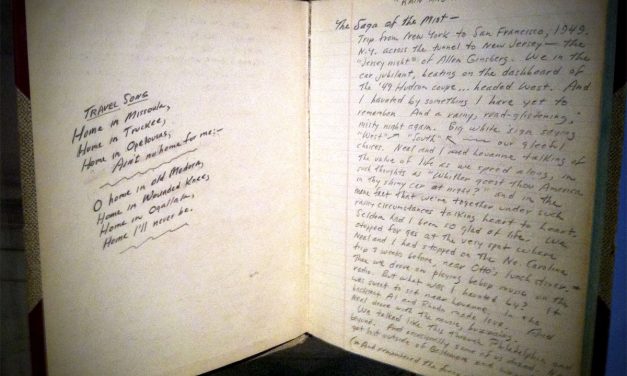 TRAVEL SONG
Home in Missoula,
Home in Truckee,
Home in Opelousas,
Ain't no home for me:-
O home in old Medora,
Home in Wounded Knee,
Home in Ogallala,
Home I'll never be.
"RAIN AND
The Saga of the Mist—
Trip from New York to San Francisco, 1949.
N.Y. across the tunnel to New Jersey — the
"Jersey night" of Allen Ginsberg. We in the
car jubilant, beating on the dashboard of
the '49 Hudson coupe... headed West. And
I haunted by something I have yet to
remember. And a rainy, road-glistening,
misty night again. Big white sign saying
"West" "South" our gleeful
choices. Neal and I and Louanne talking of
the value of life as we speed along, in
such thoughts as "Whither goest thou America
in thy shiny car at night?" and in the
mere fact that we're together under such
rainy circumstances talking heart to heart.
Seldom had I been so glad of life. We
stopped for gas at the very spot where
Neal and I had stopped on the No. Carolina
trip 3 weeks before, near Otto's lunch diner.
Then we drove on playing bebop music on the
radio. But what was I haunted by? It
was sweet to sit near Louanne. In the
backseat Al and Rhoda made love. And
Neal drove with the music, huzzaing.
We talked like this through Philadelphia and
beyond. And occasionally some of us dozed. Neal
got lost outside of Baltimore and wound
And remembered the